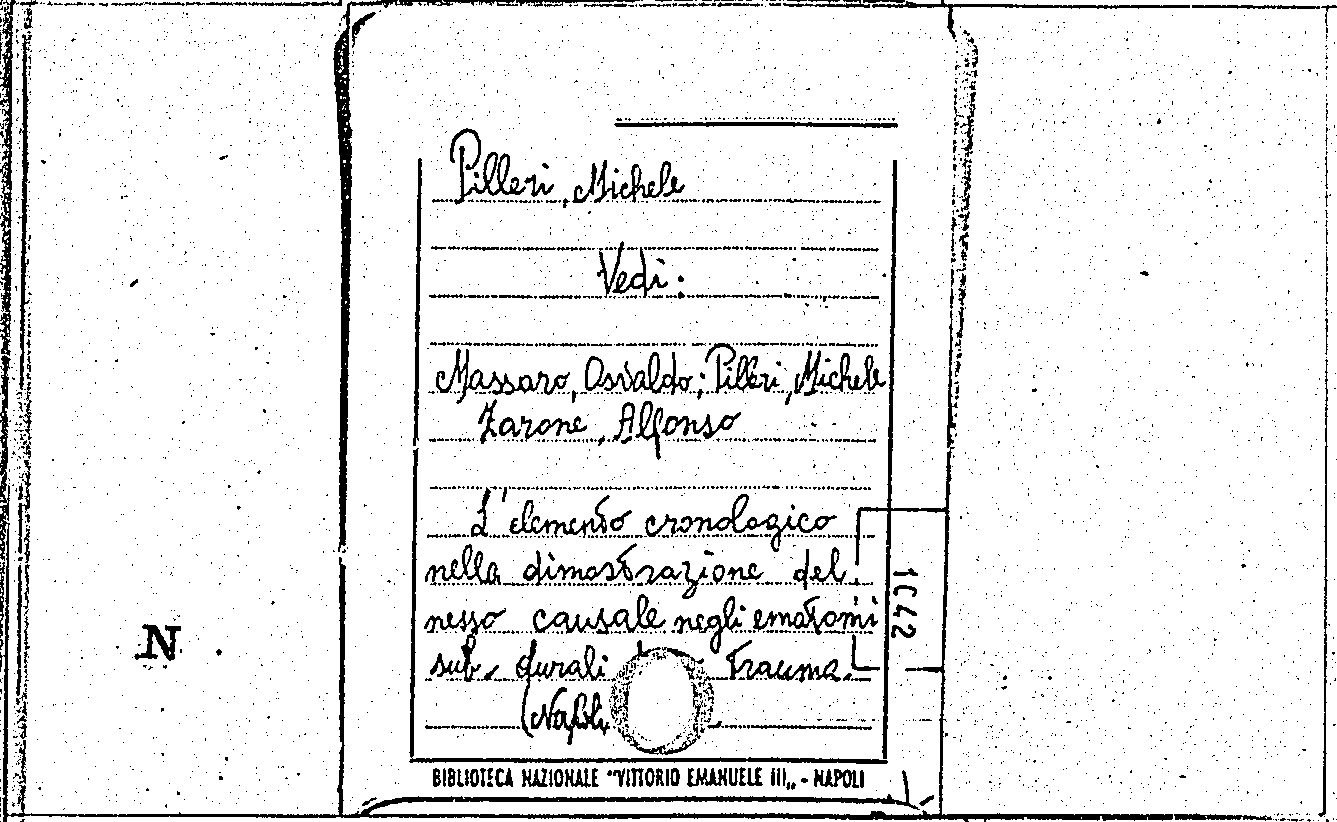 Pilleri, Michele
Vedi:
Massaro, Osvaldo; Pilleri, Michele
Zarone, Alfonso
L'elemento cronologico
nella dimostrazione del
nesso causale negli ematomi
sub-durali trauma.
(Napoli
1042
N
BIBLIOTECA NAZIONALE "VITTORIO EMANUELE III„ - NAPOLI